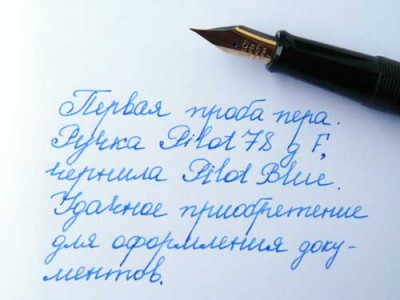 Первая проба пера.
Ручка Pilot 78 g F,
чернила Pilot Blue.
Удачное приобретение
для оформления доку-
ментов.